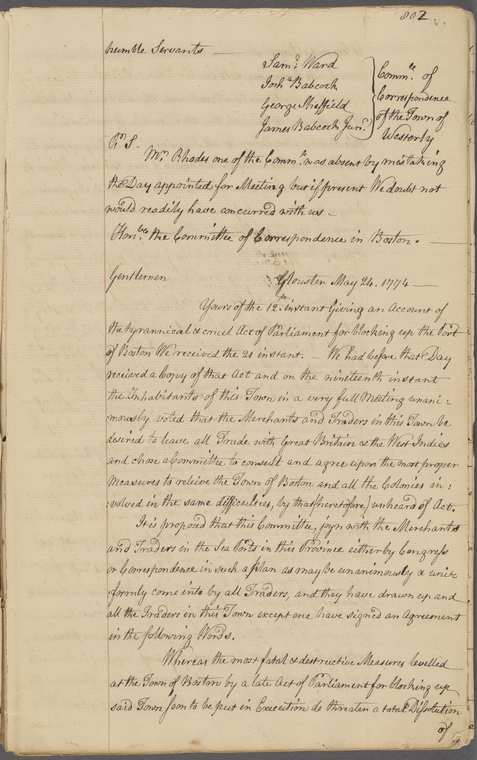 802
humble Servants
Sam.l Ward
Josh.a Babcock
George Sheffield
James Babcock Jun.r
Comm.ee of
Correspondence
of the Town of
Westerly
P.S.
Mr. Rhodes one of the Comm.ee was absent by mistaking
the Day appointed for Meeting but if present We doubt not
would readily have concurred with us
Hon.ble the Committee of Correspondence in Boston.
Gentlemen
Glouster May 24. 1774
Yours of the 12.th instant Giving an Account of
the tyrannical & cruel Act of Parliament for blocking up the Port
of Boston We received the 21 instant. - We had before that Day
received a Copy of that Act and on the nineteenth instant
the Inhabitants of this Town in a very full Meeting unani=
mously voted that the Merchants and Traders in this Town be
desired to leave all Trade with Great Britain & the West Indies
and chose a Committee to consult and agree upon the most proper
Measures to releive the Town of Boston and all the Colonies in:
volved in the same difficulties, by that (heretofore) unheard of Act.
It is proposed that this Committee, joyn with the Merchants
and Traders in the Sea Ports in this Province either by Congress
or Correspondence in such a plan as may be unanimously & uni=
formly come into by all Traders, and they have drawn up and
all the Traders in this Town except one have signed an Agreement
in the following Words.
Whereas the most fatal & destructive Measures levelled
at the Town of Boston by a late Act of Parliament for blocking up
said Town soon to be put in Execution do threaten a total Dissolution
of